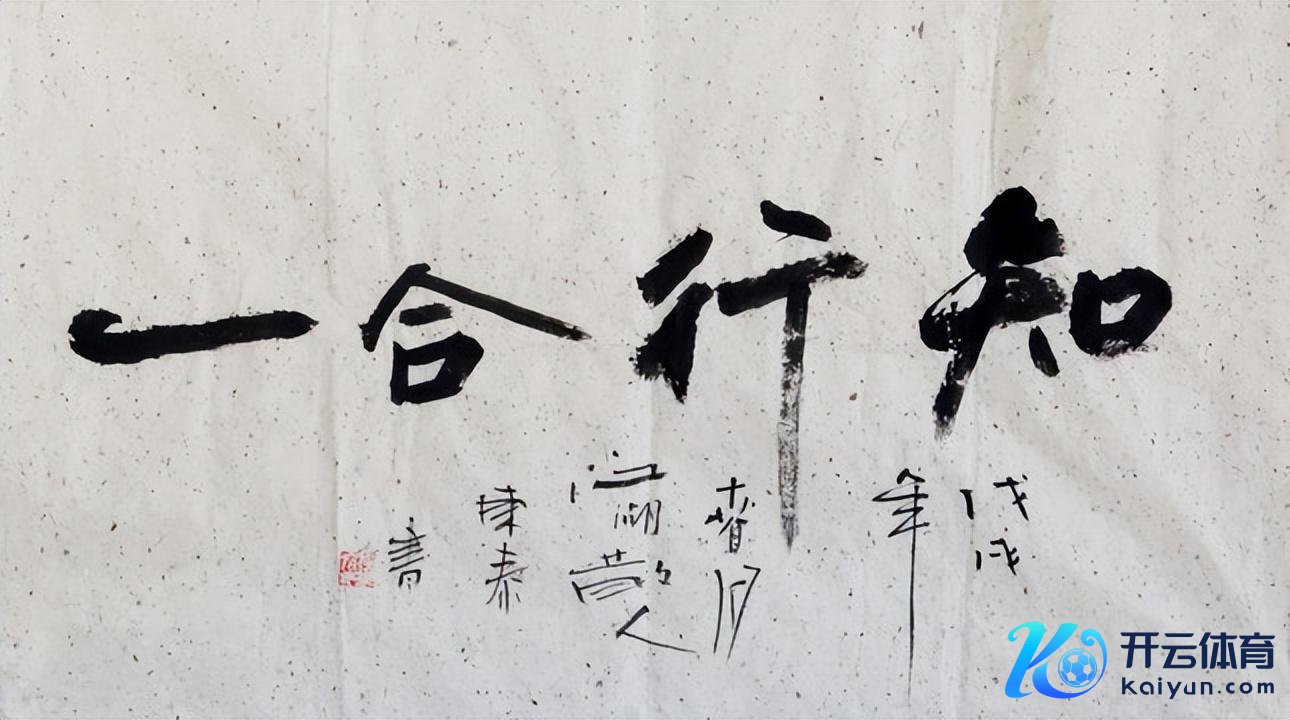 知行合一
戊戌
年
春月
江湖散人
陳泰
書
开云体育
kaiyun.com